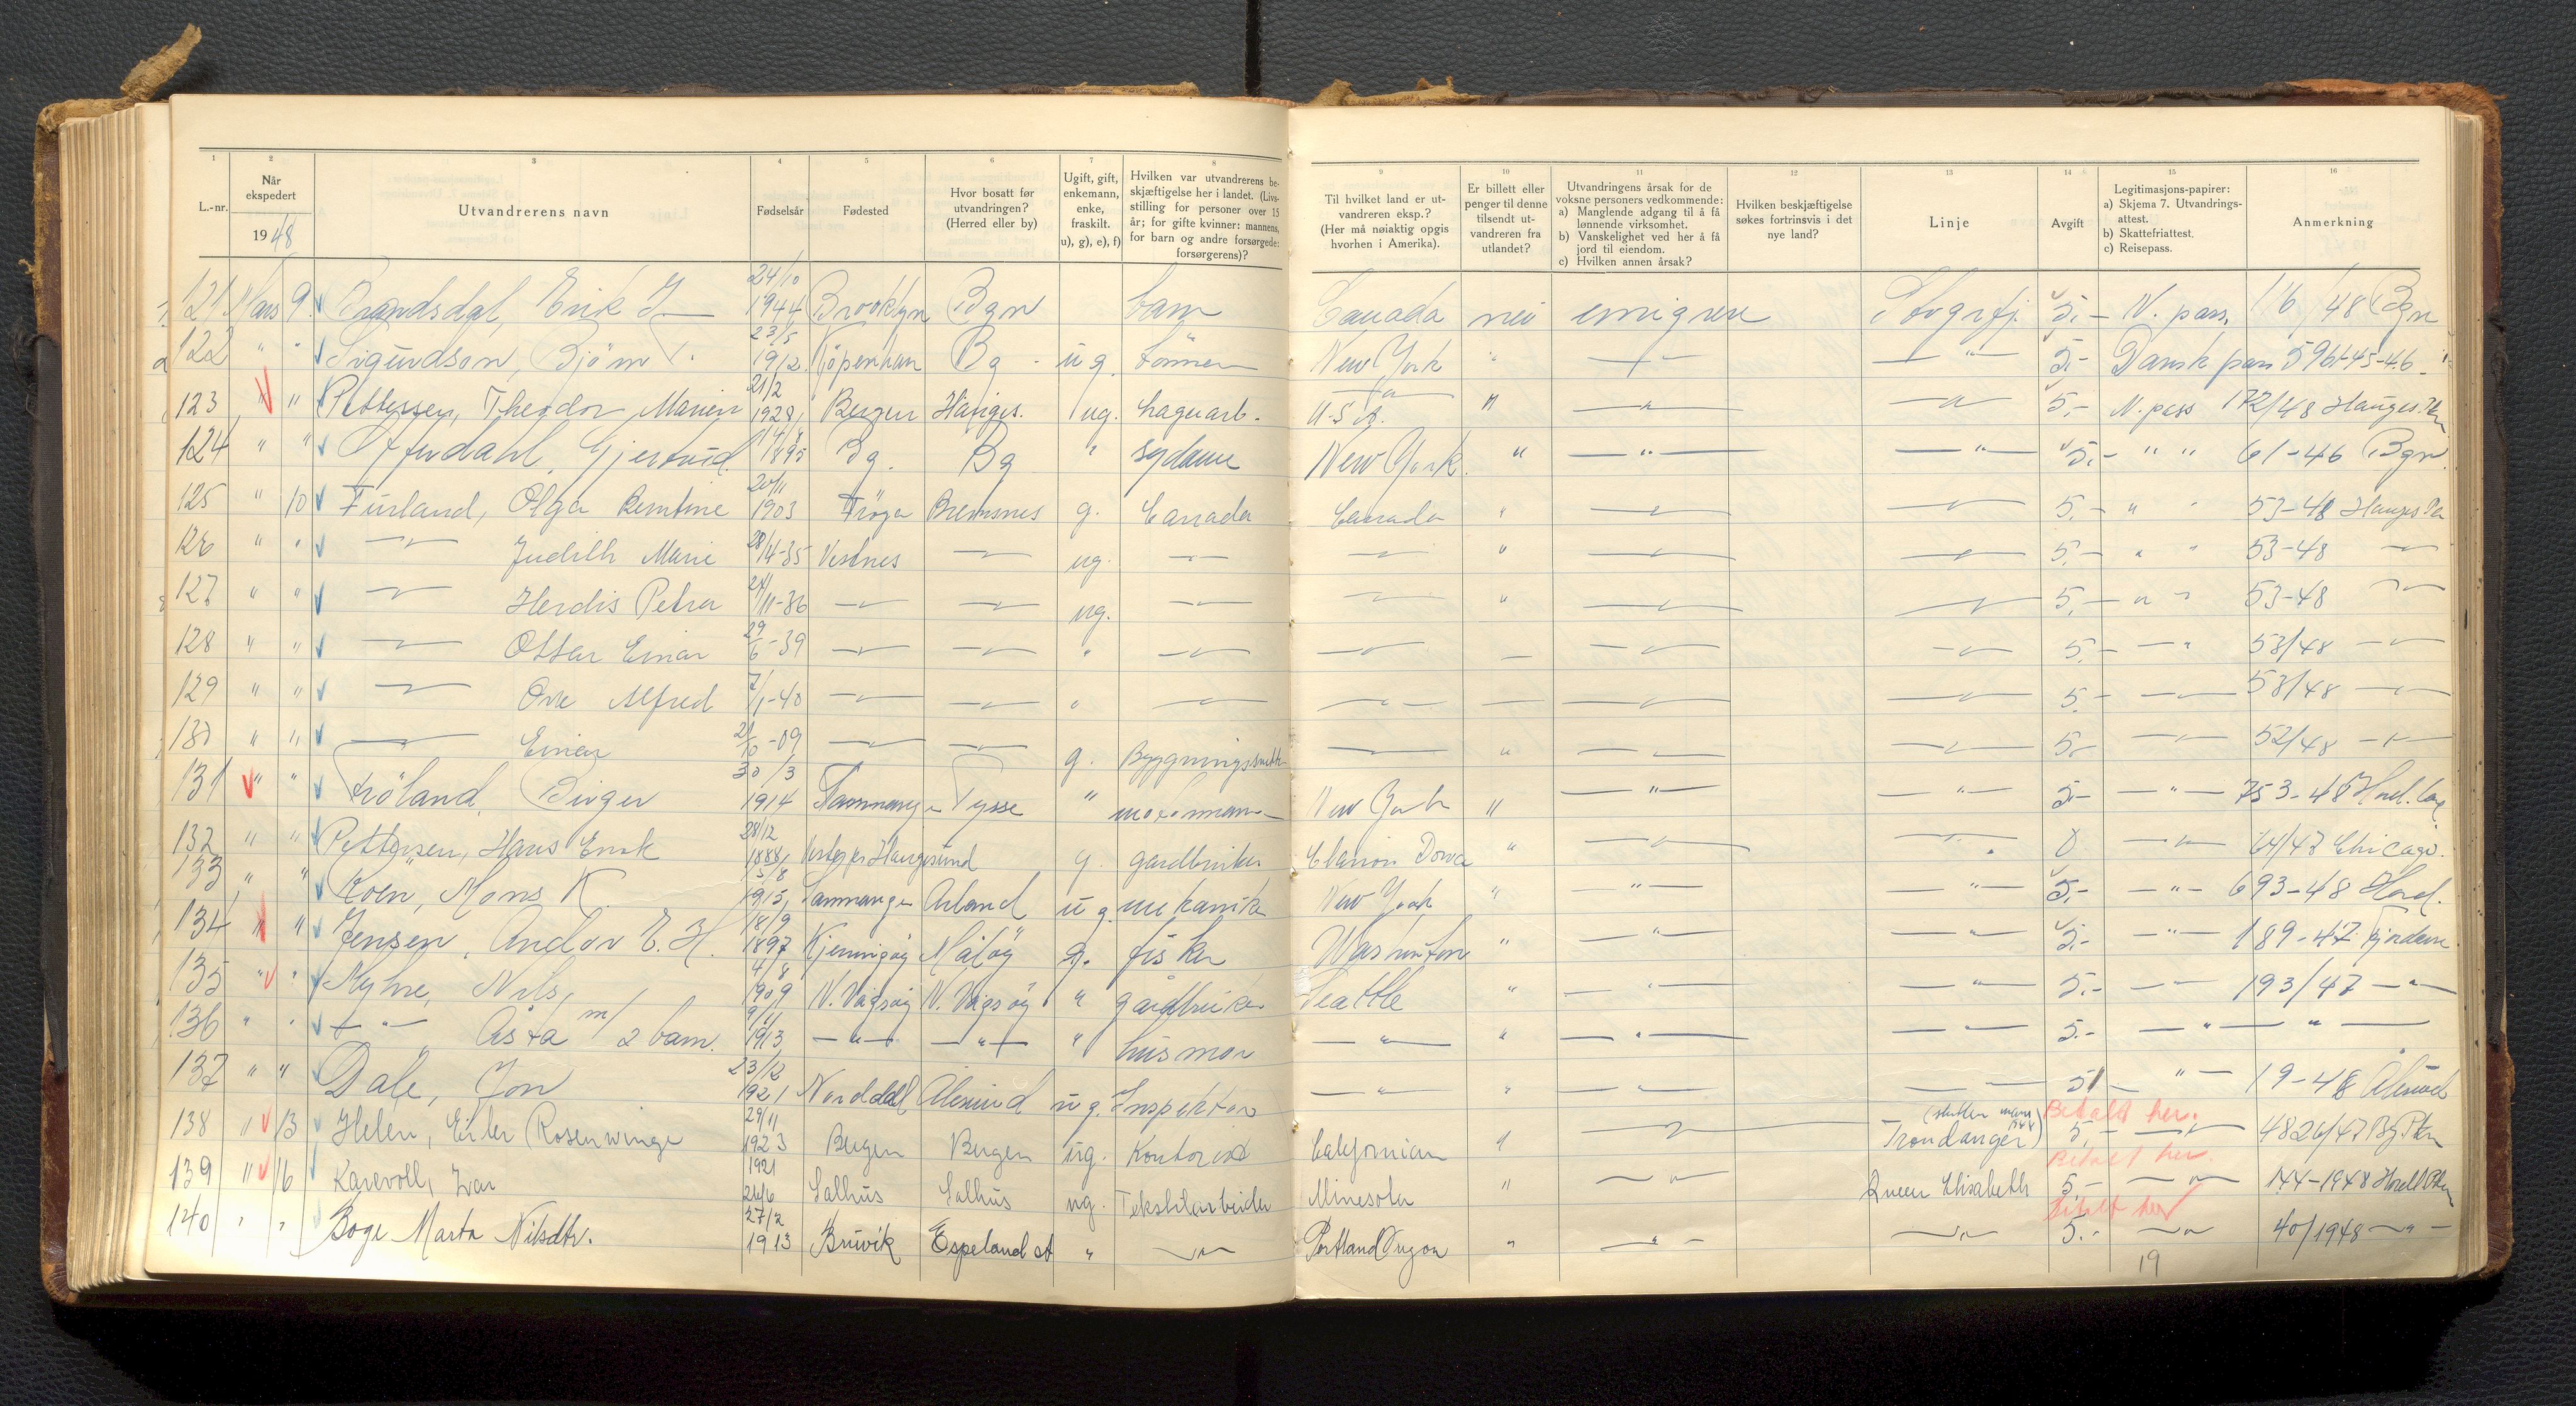 1 2 3 4 5 6 7 8 9 10 11 12 13 14 15 16
L.-nr. Når ekspedert 1948 Utvandrerens navn Fødselsår Fødested Hvor bosatt før utvandringen? (Herred eller by) Ugift, gift, enkemann, enke, fraskilt. u), g), e), f) Hvilken var utvandrerens beskjæftigelse her i landet. (Livsstilling for personer over 15 år; for gifte kvinner: mannens, for barn og andre forsørgede: forsørgerens)? Til hvilket land er utvandreren eksp.? (Her må nøiaktig opgis hvorhen i Amerika). Er billett eller penger til denne tilsendt utvandreren fra utlandet? Utvandringens årsak for de voksne personers vedkommende: a) Manglende adgang til å få lønnende virksomhet. b) Vanskelighet ved her å få jord til eiendom. c) Hvilken annen årsak? Hvilken beskjæftigelse søkes fortrinsvis i det nye land? Linje Avgift Legitimasjons-papirer: a) Skjema 7. Utvandringsattest. b) Skattefriattest. c) Reisepass. Anmerkning
121 Mars 9. Brandsdal, Erik J. 24/10 1944 Brooklyn Bgn barn Canada nei emigrere 5.- N. pass. 16/48 Bgn
122 " " Sigurdson, Björn T. 23/5 1912 Kjöpenhavn Bg - ug. tömmer New York " — — " — 5.- Dansk pass 5961-45-46
123 " " Pettersen, Theodor Marien 21/2 1928 Bergen Hauges. ug. hagearb. U.S.A. " — " — — " — 5.- N. pass 172/48 Hauges.
124 " " Offerdahl, Gjertrud 14/8 1895 Bg. Bg " sydame New York. " — " — — " — 5.- " " 61-46 Bgn
125 " 10 Furland, Olga Berntine 20/11 1903 Fröya Bremsnes g. Canada Canada " — " — — " — 5.- " " 53-48 Hauges
126 " " — " — Judith Marie 28/4-35 Vestnes — " — ug. — " — — " — " — " — — " — 5.- " " 53-48 — " —
127 " " — " — Herdis Petra 24/11-36 — " — — " — ug. — " — — " — " — " — — " — 5.- " " 53-48 — " —
128 " " — " — Ottar Einar 29/6-39 — " — — " — " — " — — " — — — " — — " — 5.- — " 53/48 — " —
129 " " — " — Ove Alfred 7/1-40 — " — — " — " — " — — " — — — " — — " — 5.- — " — 53/48 — " —
130 " " — " — Einar 21/10-09 — " — — " — g. Bygningssnekk — " — " — " — — " — 5.- — " — 52/48 — " —
131 " " Fröland, Birger 30/3 1914 Samnanger Tysse " motormann New York " — " — — " — 5.- — " — 753-48 Hord.
132 " " Pettersen, Hans Enok 28/12 1888 Haugesund g. gardbruker Clarion Iowa " — " — — " — 0 — " — 64/47 Chicago.
133 " " Roen, Mons K. 5/8 1915 Samnanger Årland ug. mekanike New York " — " — — " — 5.- — " — 693-48 Hord.
134 " " Jensen, Andor E. H. 18/9 1897 Måløy g. fisker Washinton " — " — — " — 5.- — " — 189-47 Fjordane
135 " " Myhre, Nils, 4/8 1909 N. Vågsøy N. Vågsøy " gårdbruker Seattle " — " — — " — 5.- — " — 193/47 — " —
136 " " — " — Åsta m/ 2 barn. 9/11 1913 — " — — " — " husmor — " — " — " — — " — 5.- — " — — " —
137 " " Dale, Jon 23/12 1921 Norddal Ålesund ug. Inspektør — " — " — " — — — 5 — " — 19-48 Ålesund
138 " 13 Helen, Eiler Rosenwinge 29/11 1923 Bergen Bergen ug. Kontorist Californian " — " — Trondanger Betalt her. 5.- — " — 4826/47
139 " 16 Karevoll, Ivar 1921 26/6 Salhus Salhus ug. Tekstilarbeider Minesota " — " — Queen Elisabeth Betalt her. 5.- — " — 144-1948
140 " " Boge Marta Nilsdtr. 27/2 1913 Bruvik Espeland st " — " — Portland Oregon " — " — — " — Betalt her 5.- — " — 40/1948 — " —
19